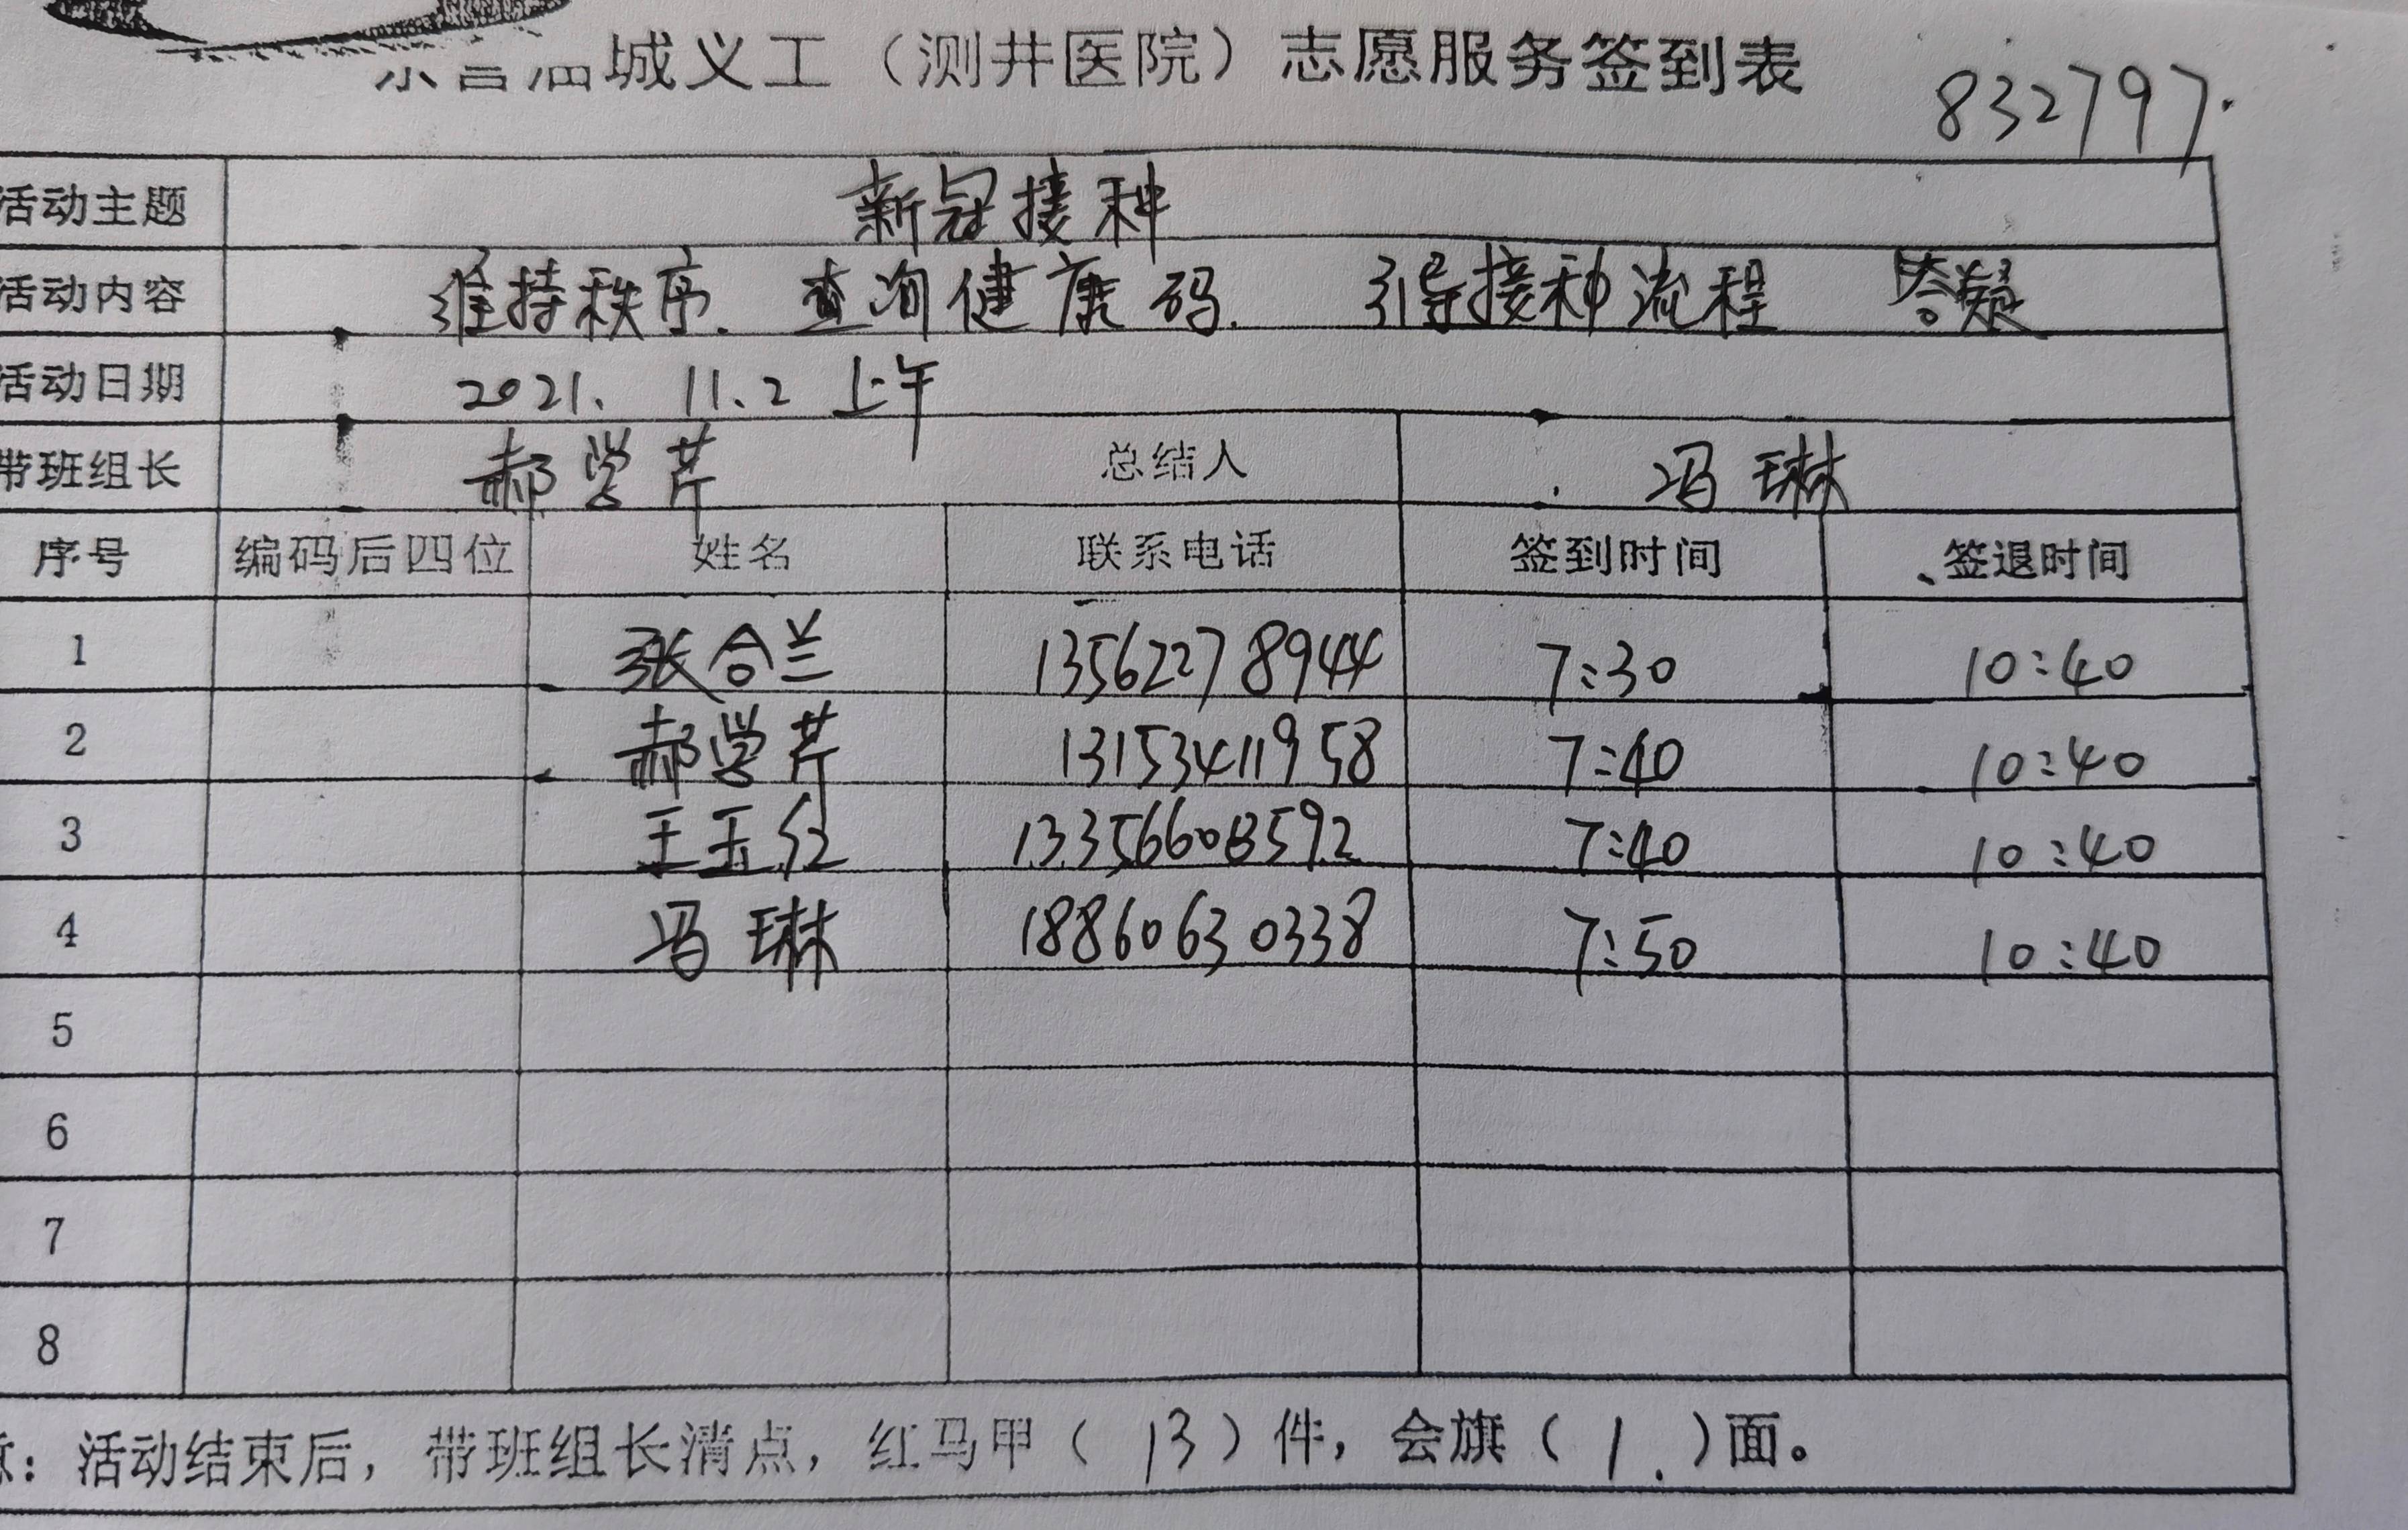 城义工（测井医院）志愿服务签到表 832797.
活动主题 新冠接种
活动内容 维持秩序. 查询健康码. 引导接种流程 答疑
活动日期 2021、11、2 上午
带班组长 郝学芹 总结人 冯琳
序号 编码后四位 姓名 联系电话 签到时间 签退时间
1 张合兰 13562278944 7:30 10:40
2 郝学芹 13153411958 7:40 10:40
3 王玉红 7:40 10:40
4 冯琳 18860630338 7:50 10:40
5
6
7
8
：活动结束后，带班组长清点，红马甲（13）件，会旗（1.）面。